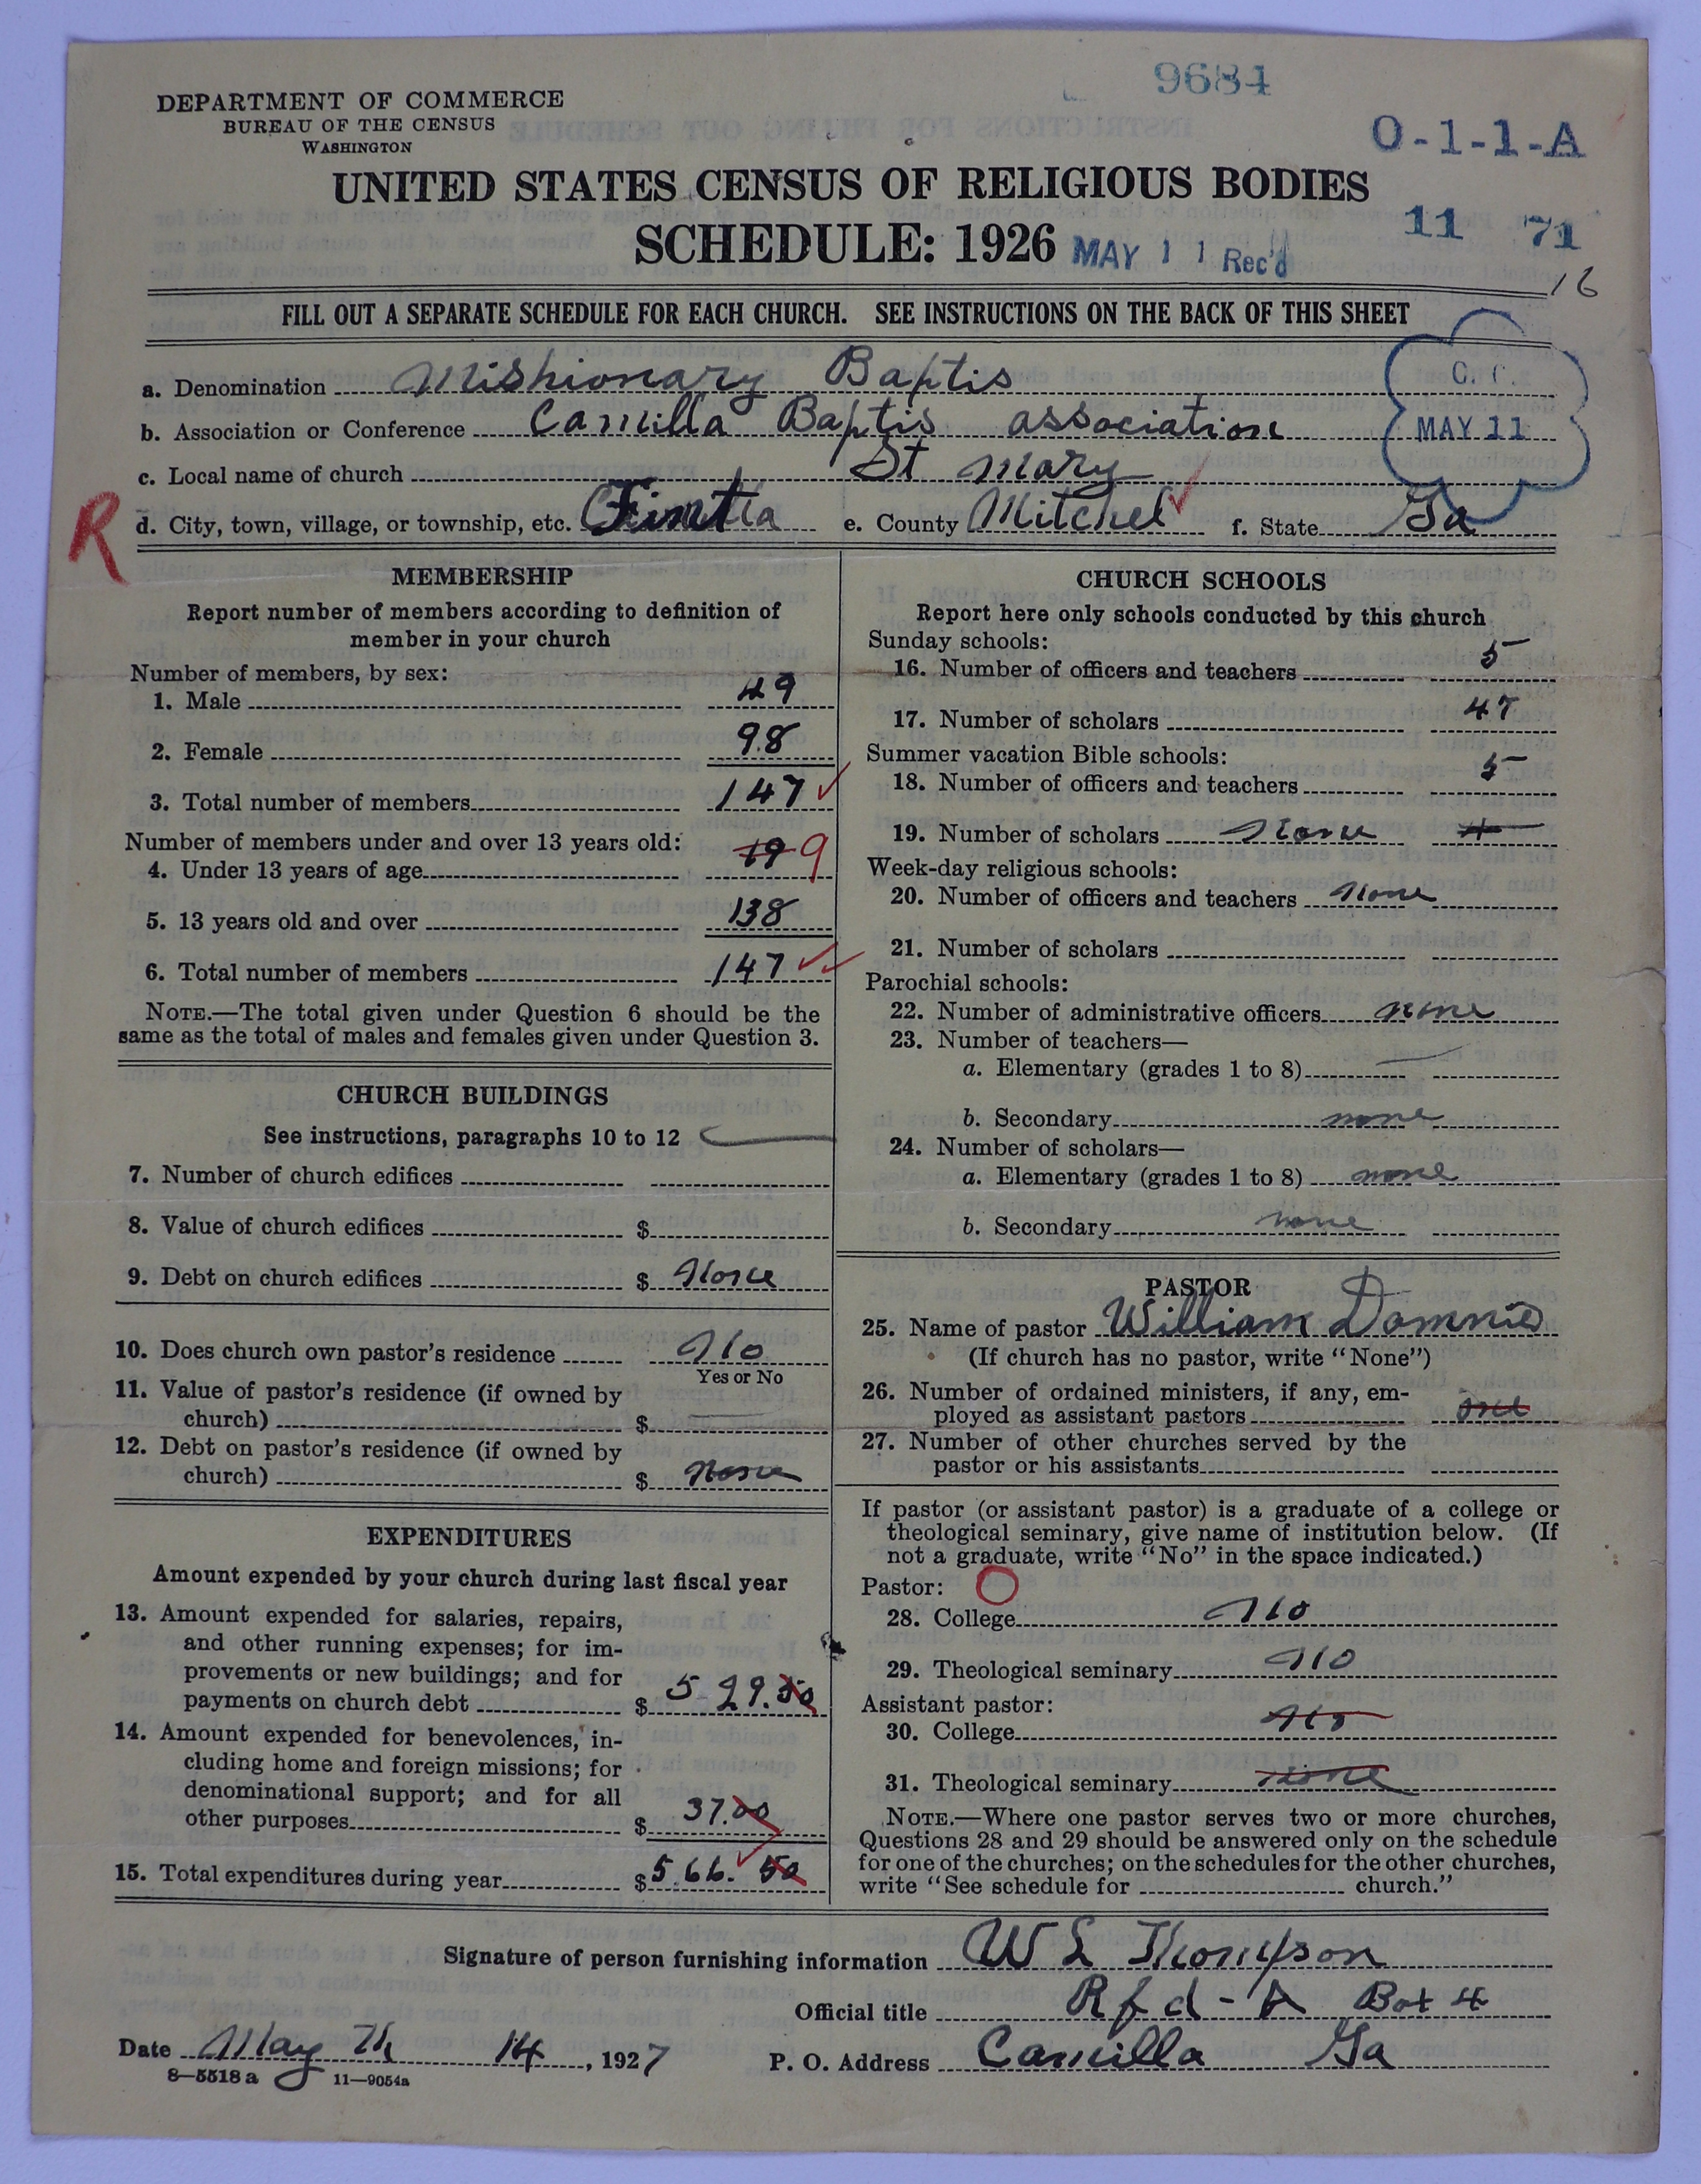 9684
DEPARTMENT OF COMMERCE
BUREAU OF THE CENSUS
WASHINGTON
O-1-1-A
UNITED STATES CENSUS OF RELIGIOUS BODIES
SCHEDULE: 1926 MAY 11 Rec'd 11 71
16
FILL OUT A SEPARATE SCHEDULE FOR EACH CHURCH. SEE INSTRUCTIONS ON THE BACK OF THIS SHEET
a. Denomination Mishionary Baptis
b. Association or Conference Camilla Baptis association
MAY 11
c. Local name of church St Mary
R
d. City, town, village, or township, etc. e. County Mitchel f. State Ga
MEMBERSHIP
Report number of members according to definition of
member in your church
Number of members, by sex:
1. Male 49
2. Female 98
3. Total number of members 147
Number of members under and over 13 years old:
4. Under 13 years of age 19 9
5. 13 years old and over 138
6. Total number of members 147
NOTE.—The total given under Question 6 should be the
same as the total of males and females given under Question 3.
CHURCH BUILDINGS
See instructions, paragraphs 10 to 12
7. Number of church edifices
8. Value of church edifices $
9. Debt on church edifices $ None
10. Does church own pastor's residence No
Yes or No
11. Value of pastor's residence (if owned by
church) $
12. Debt on pastor's residence (if owned by
church) $ None
EXPENDITURES
Amount expended by your church during last fiscal year
13. Amount expended for salaries, repairs,
and other running expenses; for im-
provements or new buildings; and for
payments on church debt $ 529.50
14. Amount expended for benevolences, in-
cluding home and foreign missions; for
denominational support; and for all
other purposes $ 37.00
15. Total expenditures during year $ 566.50
CHURCH SCHOOLS
Report here only schools conducted by this church
Sunday schools:
16. Number of officers and teachers 5
17. Number of scholars 47
Summer vacation Bible schools:
18. Number of officers and teachers 5
19. Number of scholars None
Week-day religious schools:
20. Number of officers and teachers None
21. Number of scholars
Parochial schools:
22. Number of administrative officers none
23. Number of teachers—
a. Elementary (grades 1 to 8)
b. Secondary none
24. Number of scholars—
a. Elementary (grades 1 to 8) none
b. Secondary none
PASTOR
25. Name of pastor William
(If church has no pastor, write "None")
26. Number of ordained ministers, if any, em-
ployed as assistant pastors one
27. Number of other churches served by the
pastor or his assistants
If pastor (or assistant pastor) is a graduate of a college or
theological seminary, give name of institution below. (If
not a graduate, write "No" in the space indicated.)
Pastor:
28. College No
29. Theological seminary No
Assistant pastor:
30. College No
31. Theological seminary none
NOTE.—Where one pastor serves two or more churches,
Questions 28 and 29 should be answered only on the schedule
for one of the churches; on the schedules for the other churches,
write "See schedule for church."
Signature of person furnishing information W L Thompson
Official title Rfd - A Box 4
Date May Th 14, 1927 P. O. Address Camilla Ga
8—5518 a 11—9054a